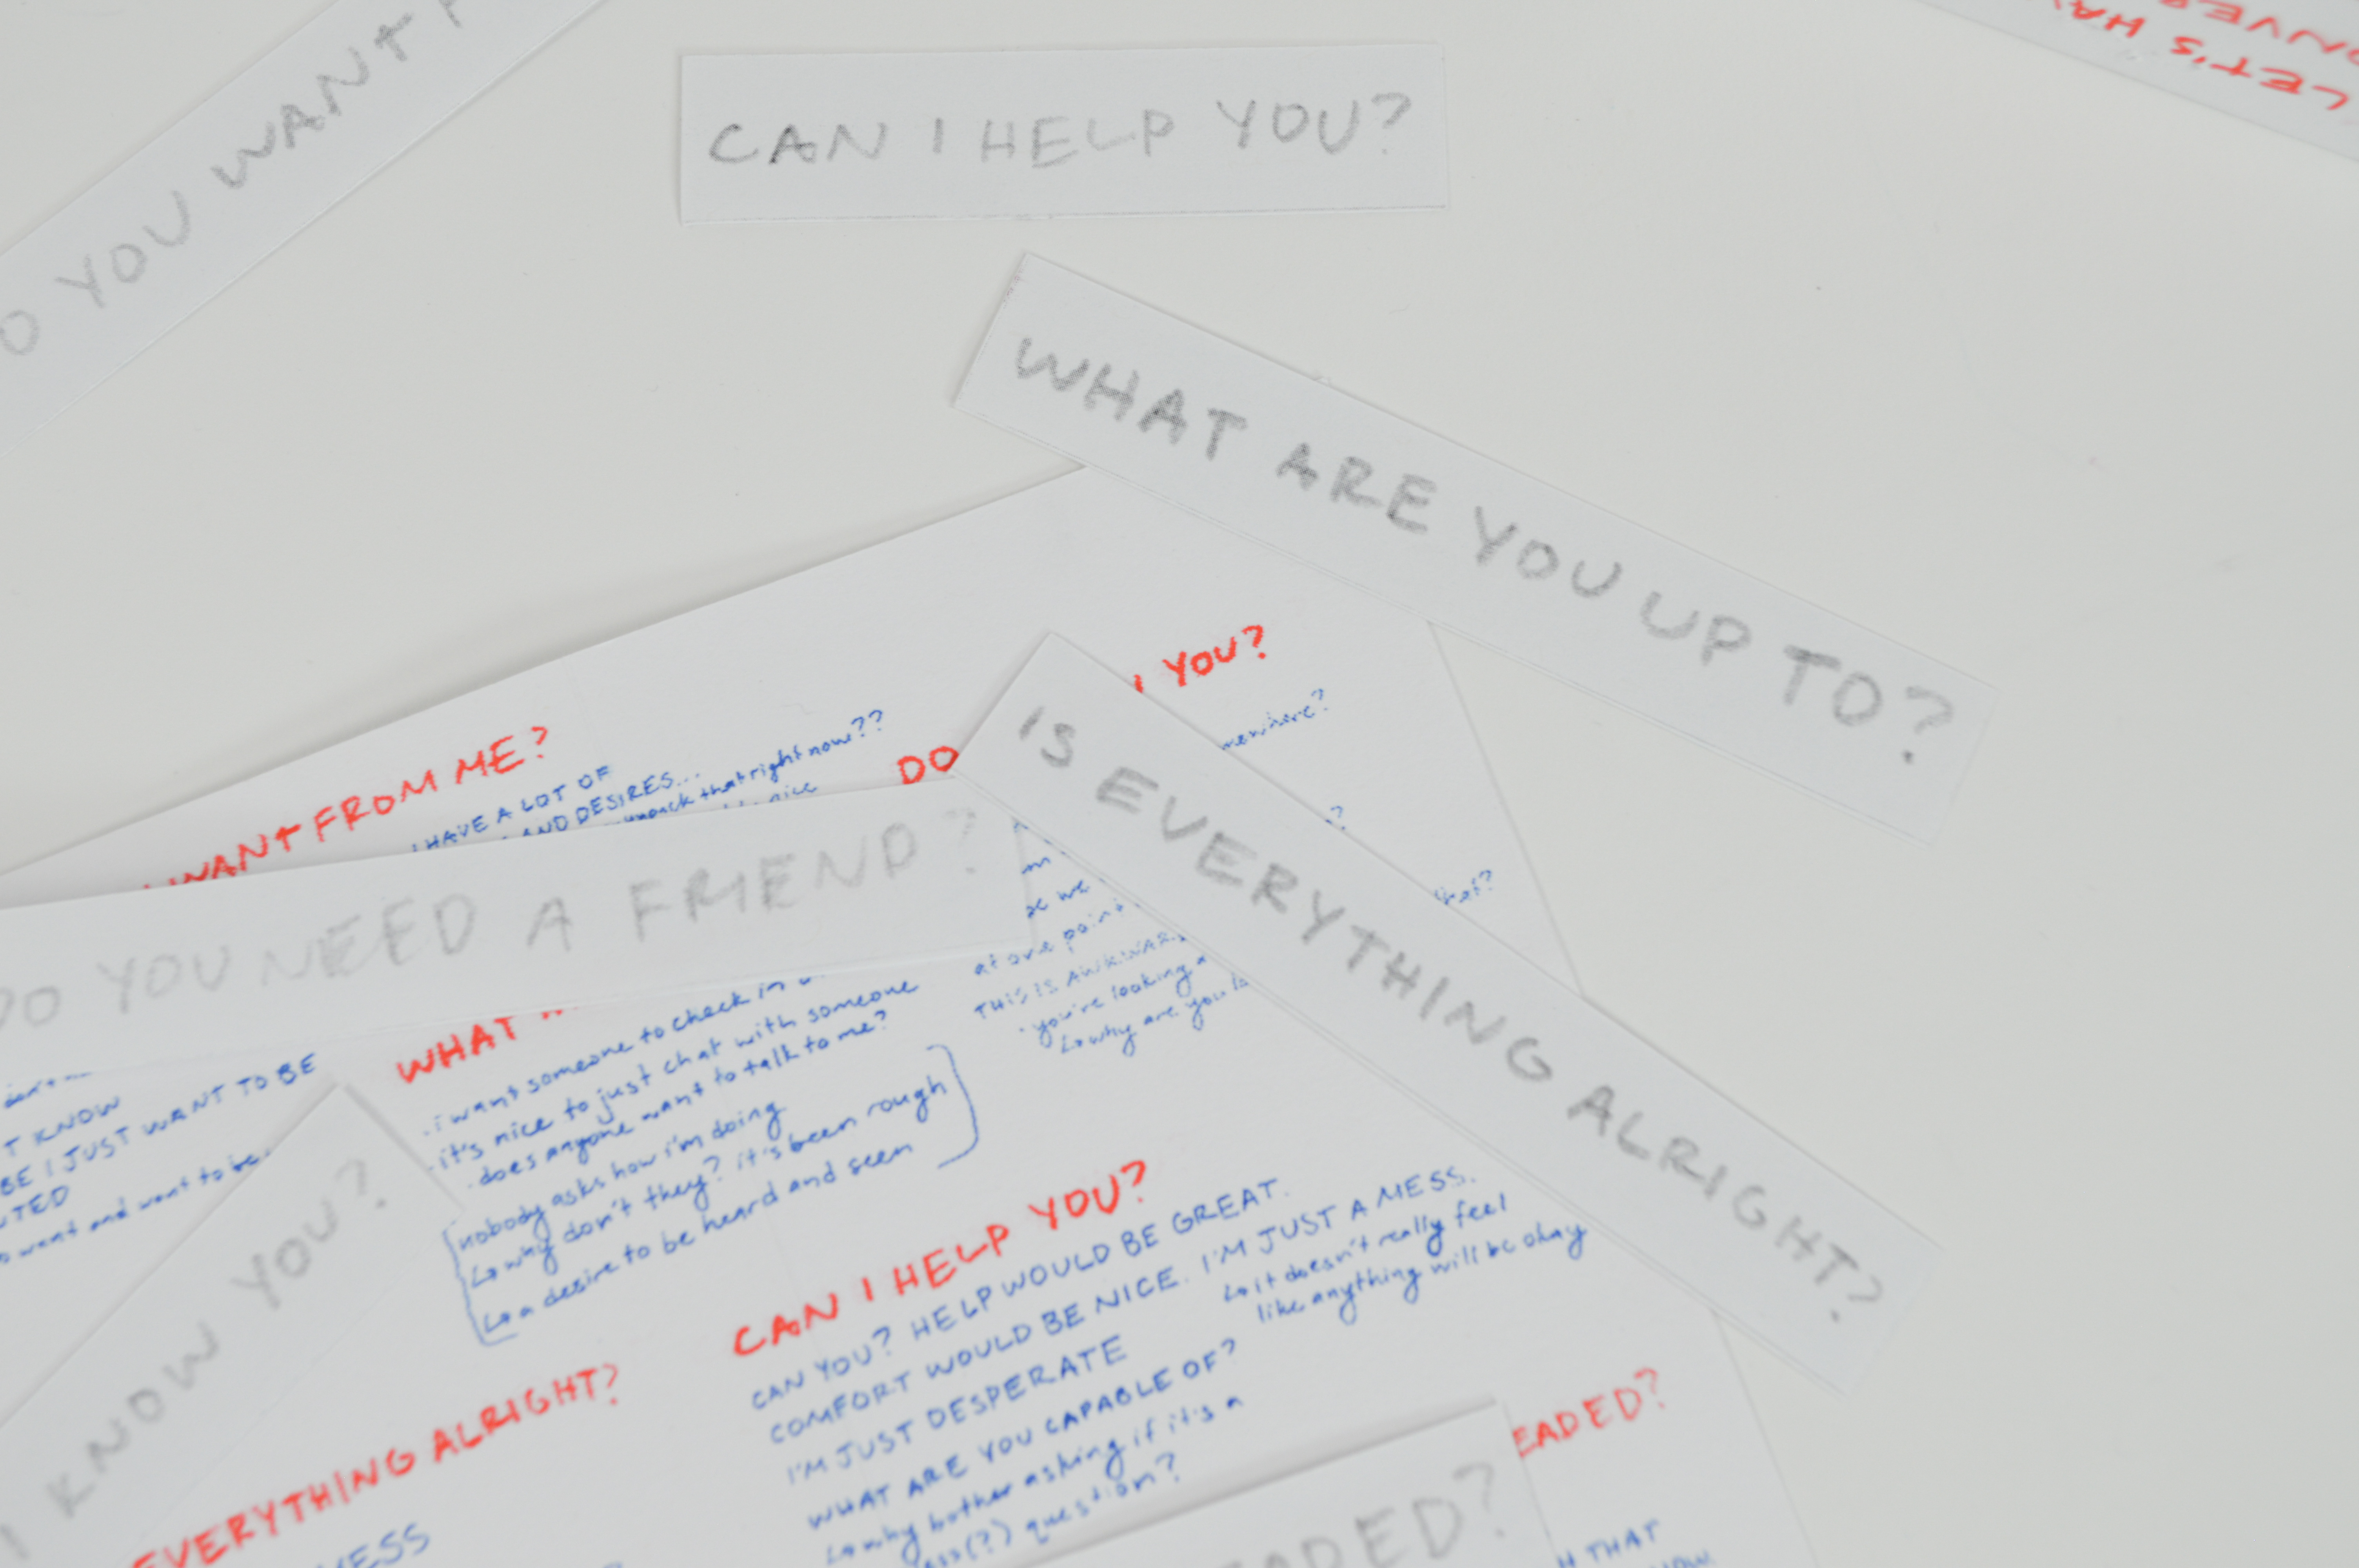 O YOU WANT F
CAN I HELP YOU?
LET'S HA
ONVER
WHAT ARE YOU UP TO?
IS EVERYTHING ALRIGHT?
WANT FROM ME?
I HAVE A LOT OF
AND DESIRES...
unpack that right now??
nice
DO
YOU?
mewhere?
?
that?
DO YOU NEED A FRIEND?
at one point
THIS IS AWKWAR
· you're looking a
↳ why are you lo
WHAT
· i want someone to check in
· it's nice to just chat with someone
· does anyone want to talk to me?
nobody asks how i'm doing
↳ why don't they? it's been rough
↳ a desire to be heard and seen
T KNOW
BE I JUST WANT TO BE
NTED
want and want to be
I KNOW YOU?
CAN I HELP YOU?
CAN YOU? HELP WOULD BE GREAT.
COMFORT WOULD BE NICE. I'M JUST A MESS.
↳ it doesn't really feel
like anything will be okay
I'M JUST DESPERATE
WHAT ARE YOU CAPABLE OF?
↳ why bother asking if it's a
ess(?) question?
EVERYTHING ALRIGHT?
MESS
EADED?
EADED?
H THAT